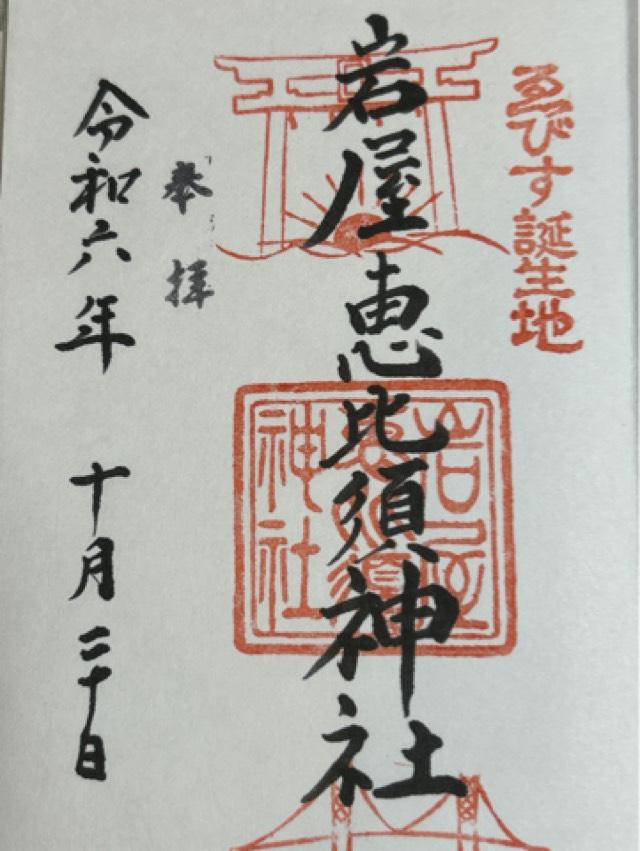 ゑびす誕生地
岩屋恵比須神社
岩屋恵比須神社
奉拝
令和六年 十月二十日